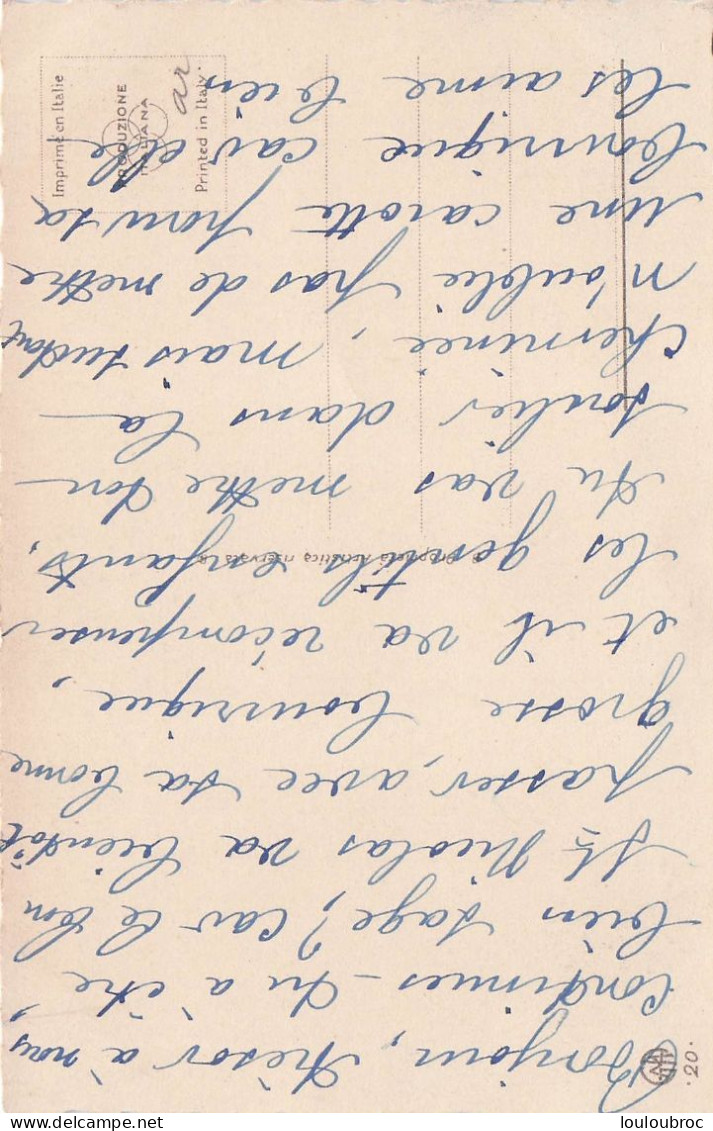 Bonjour, trésor à nous,
Continues-tu à être
bien sage? Car le bon
St Nicolas va bientôt
passer, avec sa bonne
grosse bourrique,
et il va récompenser
les gentils enfants.
Tu vas mettre ton
soulier dans la
cheminée, mais surtout
n'oublie pas de mettre
une carotte pour sa
bourrique car elle
les aime bien
Imprimé en Italie
PRODUZIONE
ITALIANA
Printed in Italy
ar
Proprietà artistica riservata
20.
louloubroc